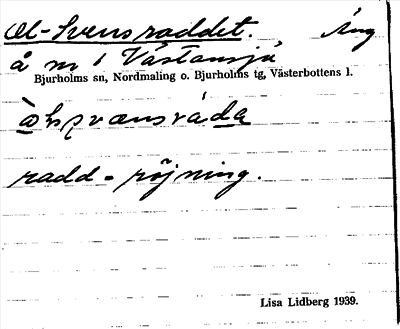 Ol-Svensraddet. Äng
å nr 1 Västansjö
Bjurholms sn, Nordmaling o. Bjurholms tg, Västerbottens l.
radd = röjning.
Lisa Lidberg 1939.